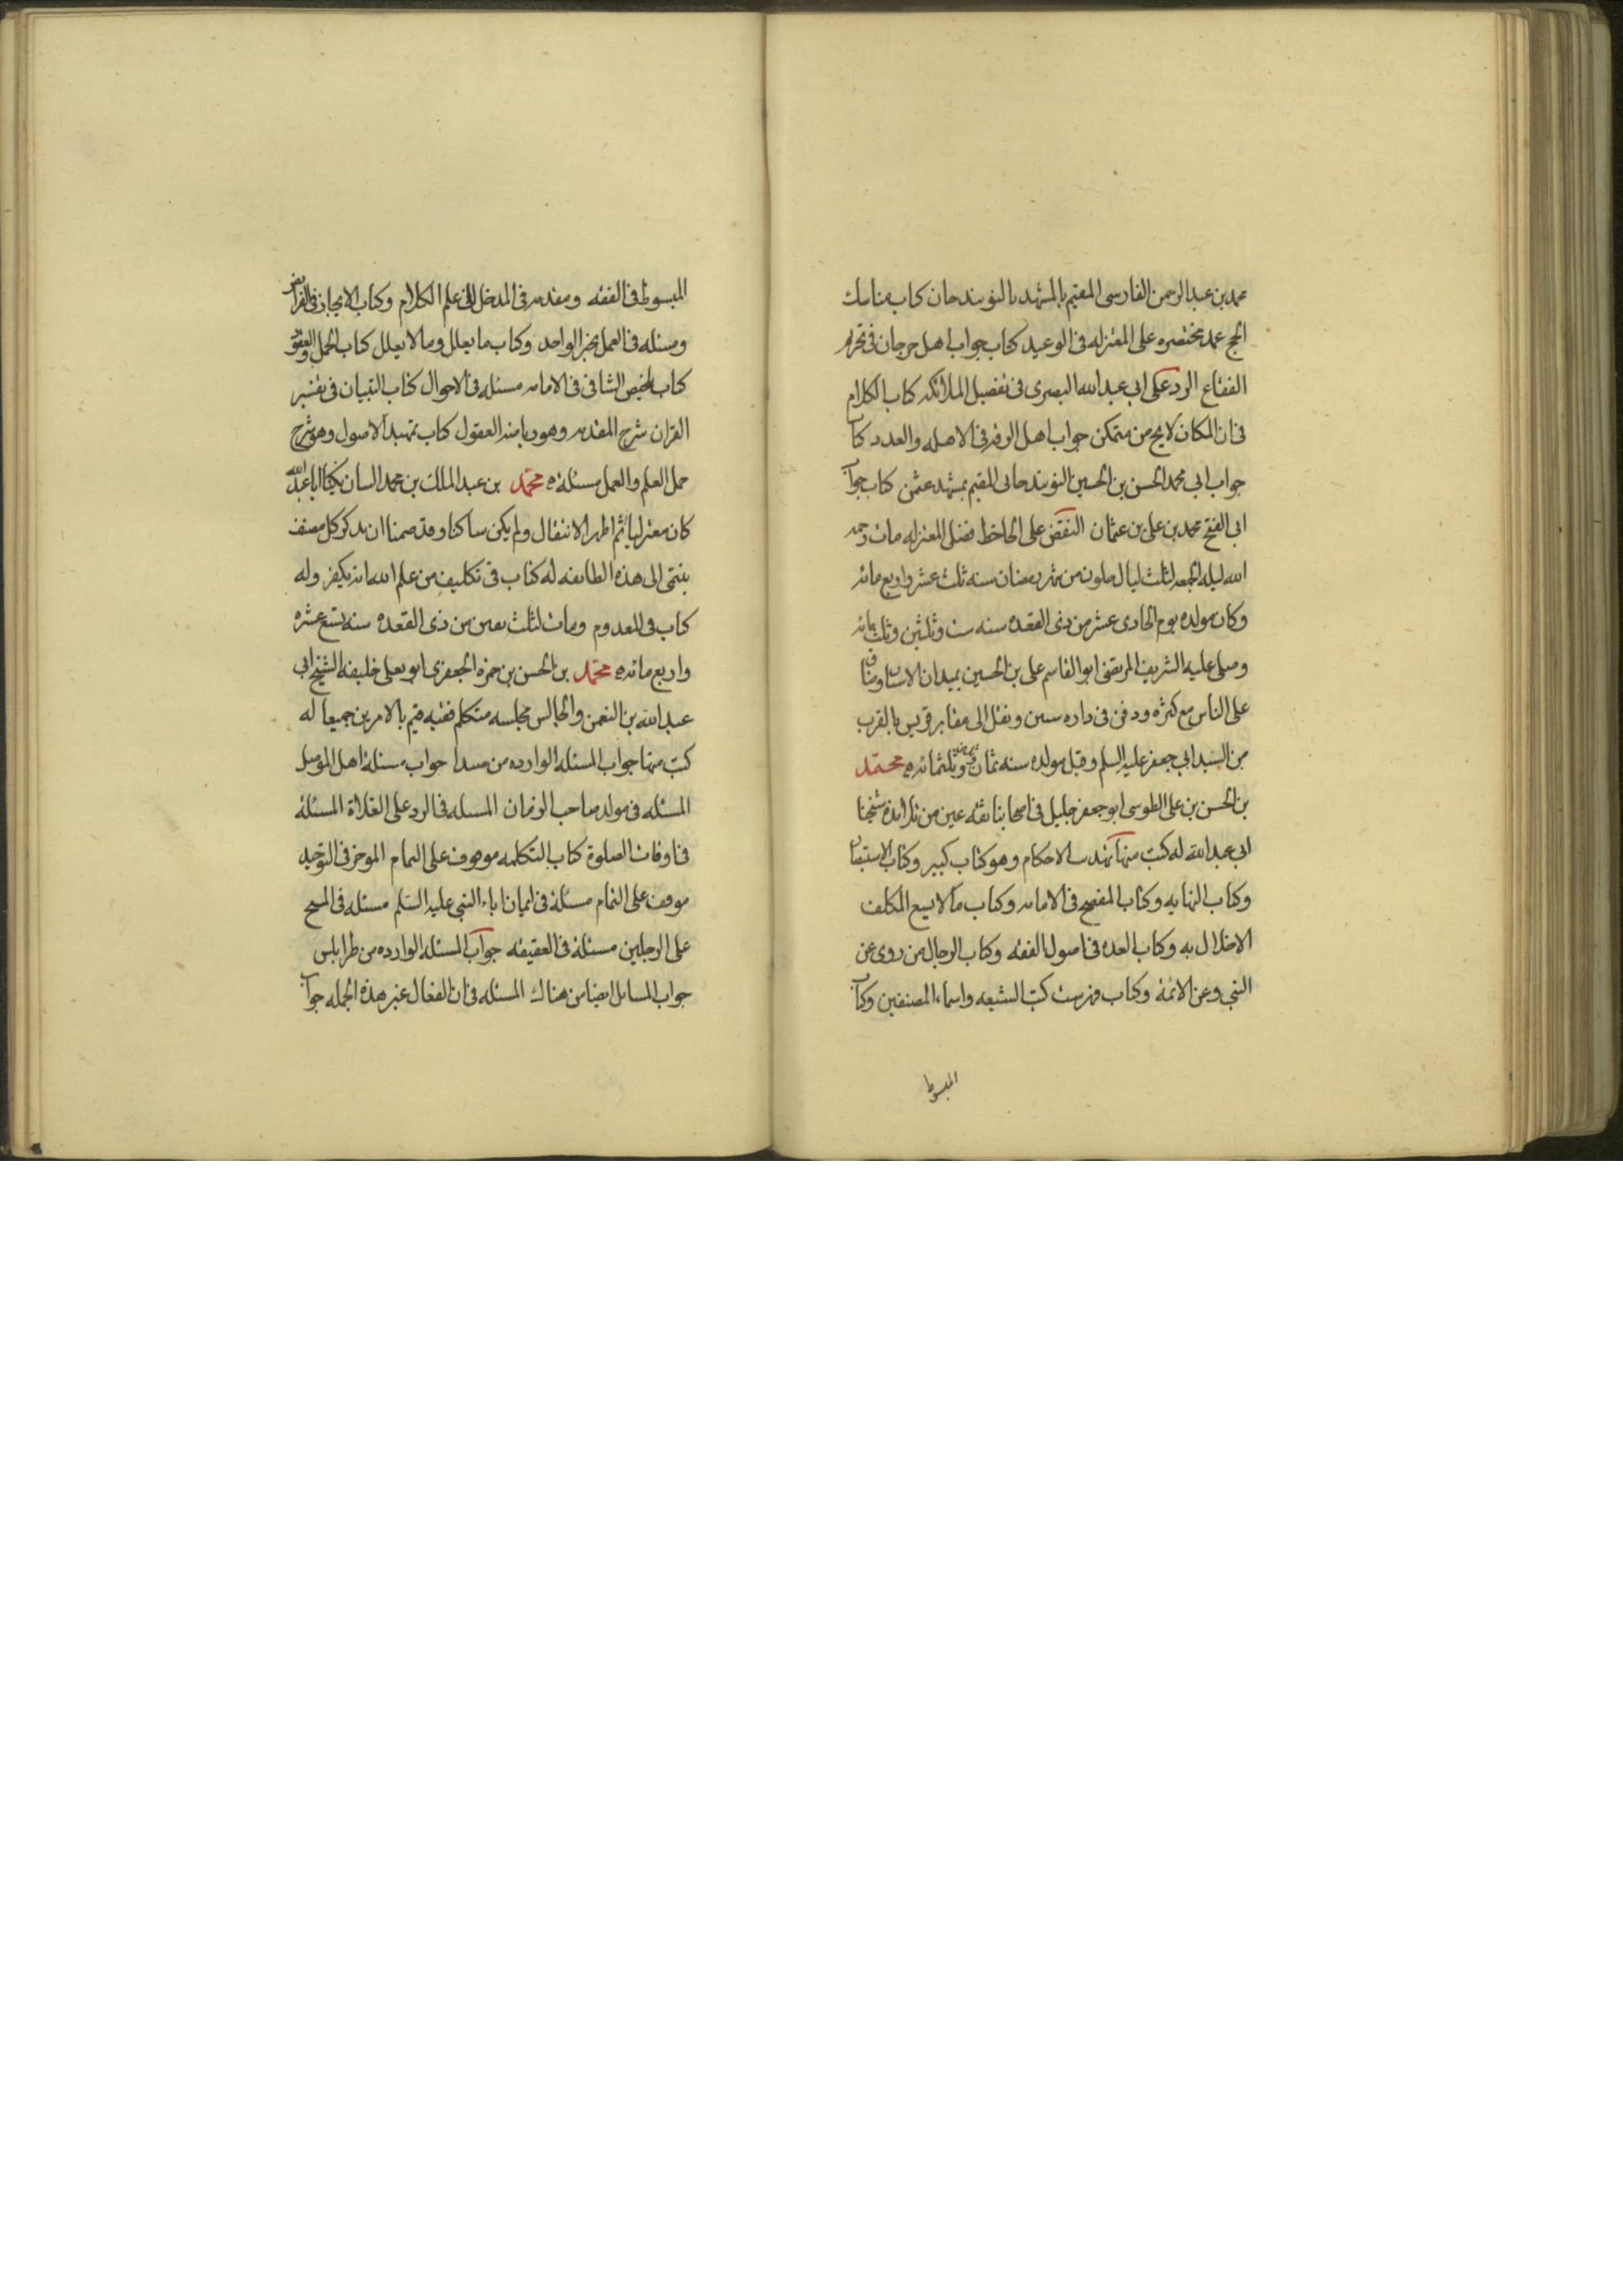 محمد بن عبد الرحمن الفارسى المقيم بالمشهد بالنوبندجان كتاب مناسك
الحج عمد مختصره على المعتزله فى الوعيد كتاب جواب اهل جرجان فى تحريم
الفقاع الرد على ابى عبد الله البصرى فى تفضيل الملائكه كتاب الكلام
فى ان المكان لا يخ من متمكن جواب اهل الرقه فى الاهله والعدد كتاب
جواب ابى محمد الحسن بن الحسين النوبندجانى المقيم بمشهد عثمن كتاب جواب
ابى الفتح محمد بن على بن عثمان النقض على الجاحظ فضل المعتزله مات رحمه
الله ليله الجمعه لثلث ليال خلون من شهر رمضان سنه ثلث عشر واربع مائه
وكان مولده يوم الحادى عشر من ذى القعده سنه ست وثلثين وثلث مائه
وصلى عليه الشريف المرتضى ابو القاسم على بن الحسين بميدان الاشنان وضاق
على الناس مع كثره ودفن فى داره سنين ونقل الى مقابر قريس بالقرب
من السيد ابى جعفر عليه السلم وقيل مولده سنه ثمان وثلثمائه محمد
بن الحسن بن على الطوسى ابو جعفر جليل فى اصحابنا ثقه عين من تلامذه شيخنا
ابى عبد الله له كتب منها تهذيب الاحكام وهو كتاب كبير وكتاب الاستبصار
وكتاب النهايه وكتاب المفصح فى الامامه وكتاب ما لا يسع المكلف
الاخلال به وكتاب العده فى اصول الفقه وكتاب الرجال من روى عن
النبى وعن الائمة وكتاب فهرست كتب الشيعه واسماء المصنفين وكتاب
المبسوط
المبسوط فى الفقه ومقدمه فى المدخل الى علم الكلام وكتاب الايجاز فى الفرائض
ومسئله فى العمل بخبر الواحد وكتاب ما يعلل وما لا يعلل كتاب الجمل والعقود
كتاب تلخيص الشافى فى الامامه مسئله فى الاحوال كتاب التبيان فى تفسير
القران شرح المقدمه وهو رياضه العقول كتاب تمهيد الاصول وهو شرح
جمل العلم والعمل مسئلة محمد بن عبد الملك بن محمد التبان يكنى ابا عبد الله
كان معتزليا ثم اظهر الانتقال ولم يكن ساكنا وقد ضمنا ان نذكر كل مصنف
ينتمى الى هذه الطائفه له كتاب فى تكليف من علم الله انه يكفر وله
كتاب فى المعدوم ومات لثلث بقين من ذى القعده سنه تسع عشره
واربع مائه محمد بن الحسن بن حمزه الجعفرى ابو يعلى خليفه الشيخ ابى
عبد الله بن النعمن والجالس مجلسه متكلم فقيه قيم بالامرين جميعا له
كتب منها جواب المسئله الوارده من صيدا جواب مسئلة اهل الموصل
المسئله فى مولد صاحب الزمان المسئله فى الرد على الغلاة المسئلة
فى اوقات الصلوة كتاب التكلمه موقوف على التمام الموجز فى التوحيد
موقوف على التمام مسئلة فى ايمان اباء النبى عليه السلم مسئله فى المسح
على الرجلين مسئلة فى العقيقه جواب المسئله الوارده من طرابلس
جواب المسائل ايضا من هناك المسئله فى ان الفعال غير هذه الجمله جواب